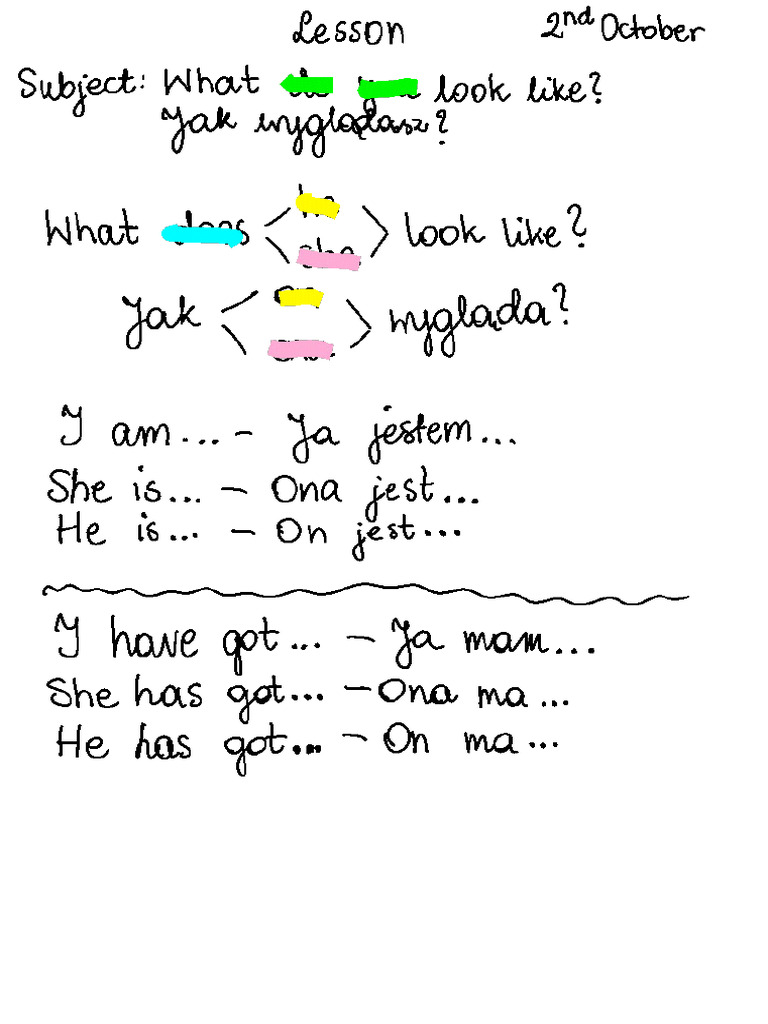 Lesson 2nd October
Subject: What do you look like?
Jak wyglądasz?
What does he she look like?
Jak wygląda?
I am... - Ja jestem...
She is... - Ona jest...
He is... - On jest...
I have got... - Ja mam...
She has got... - Ona ma...
He has got... - On ma...